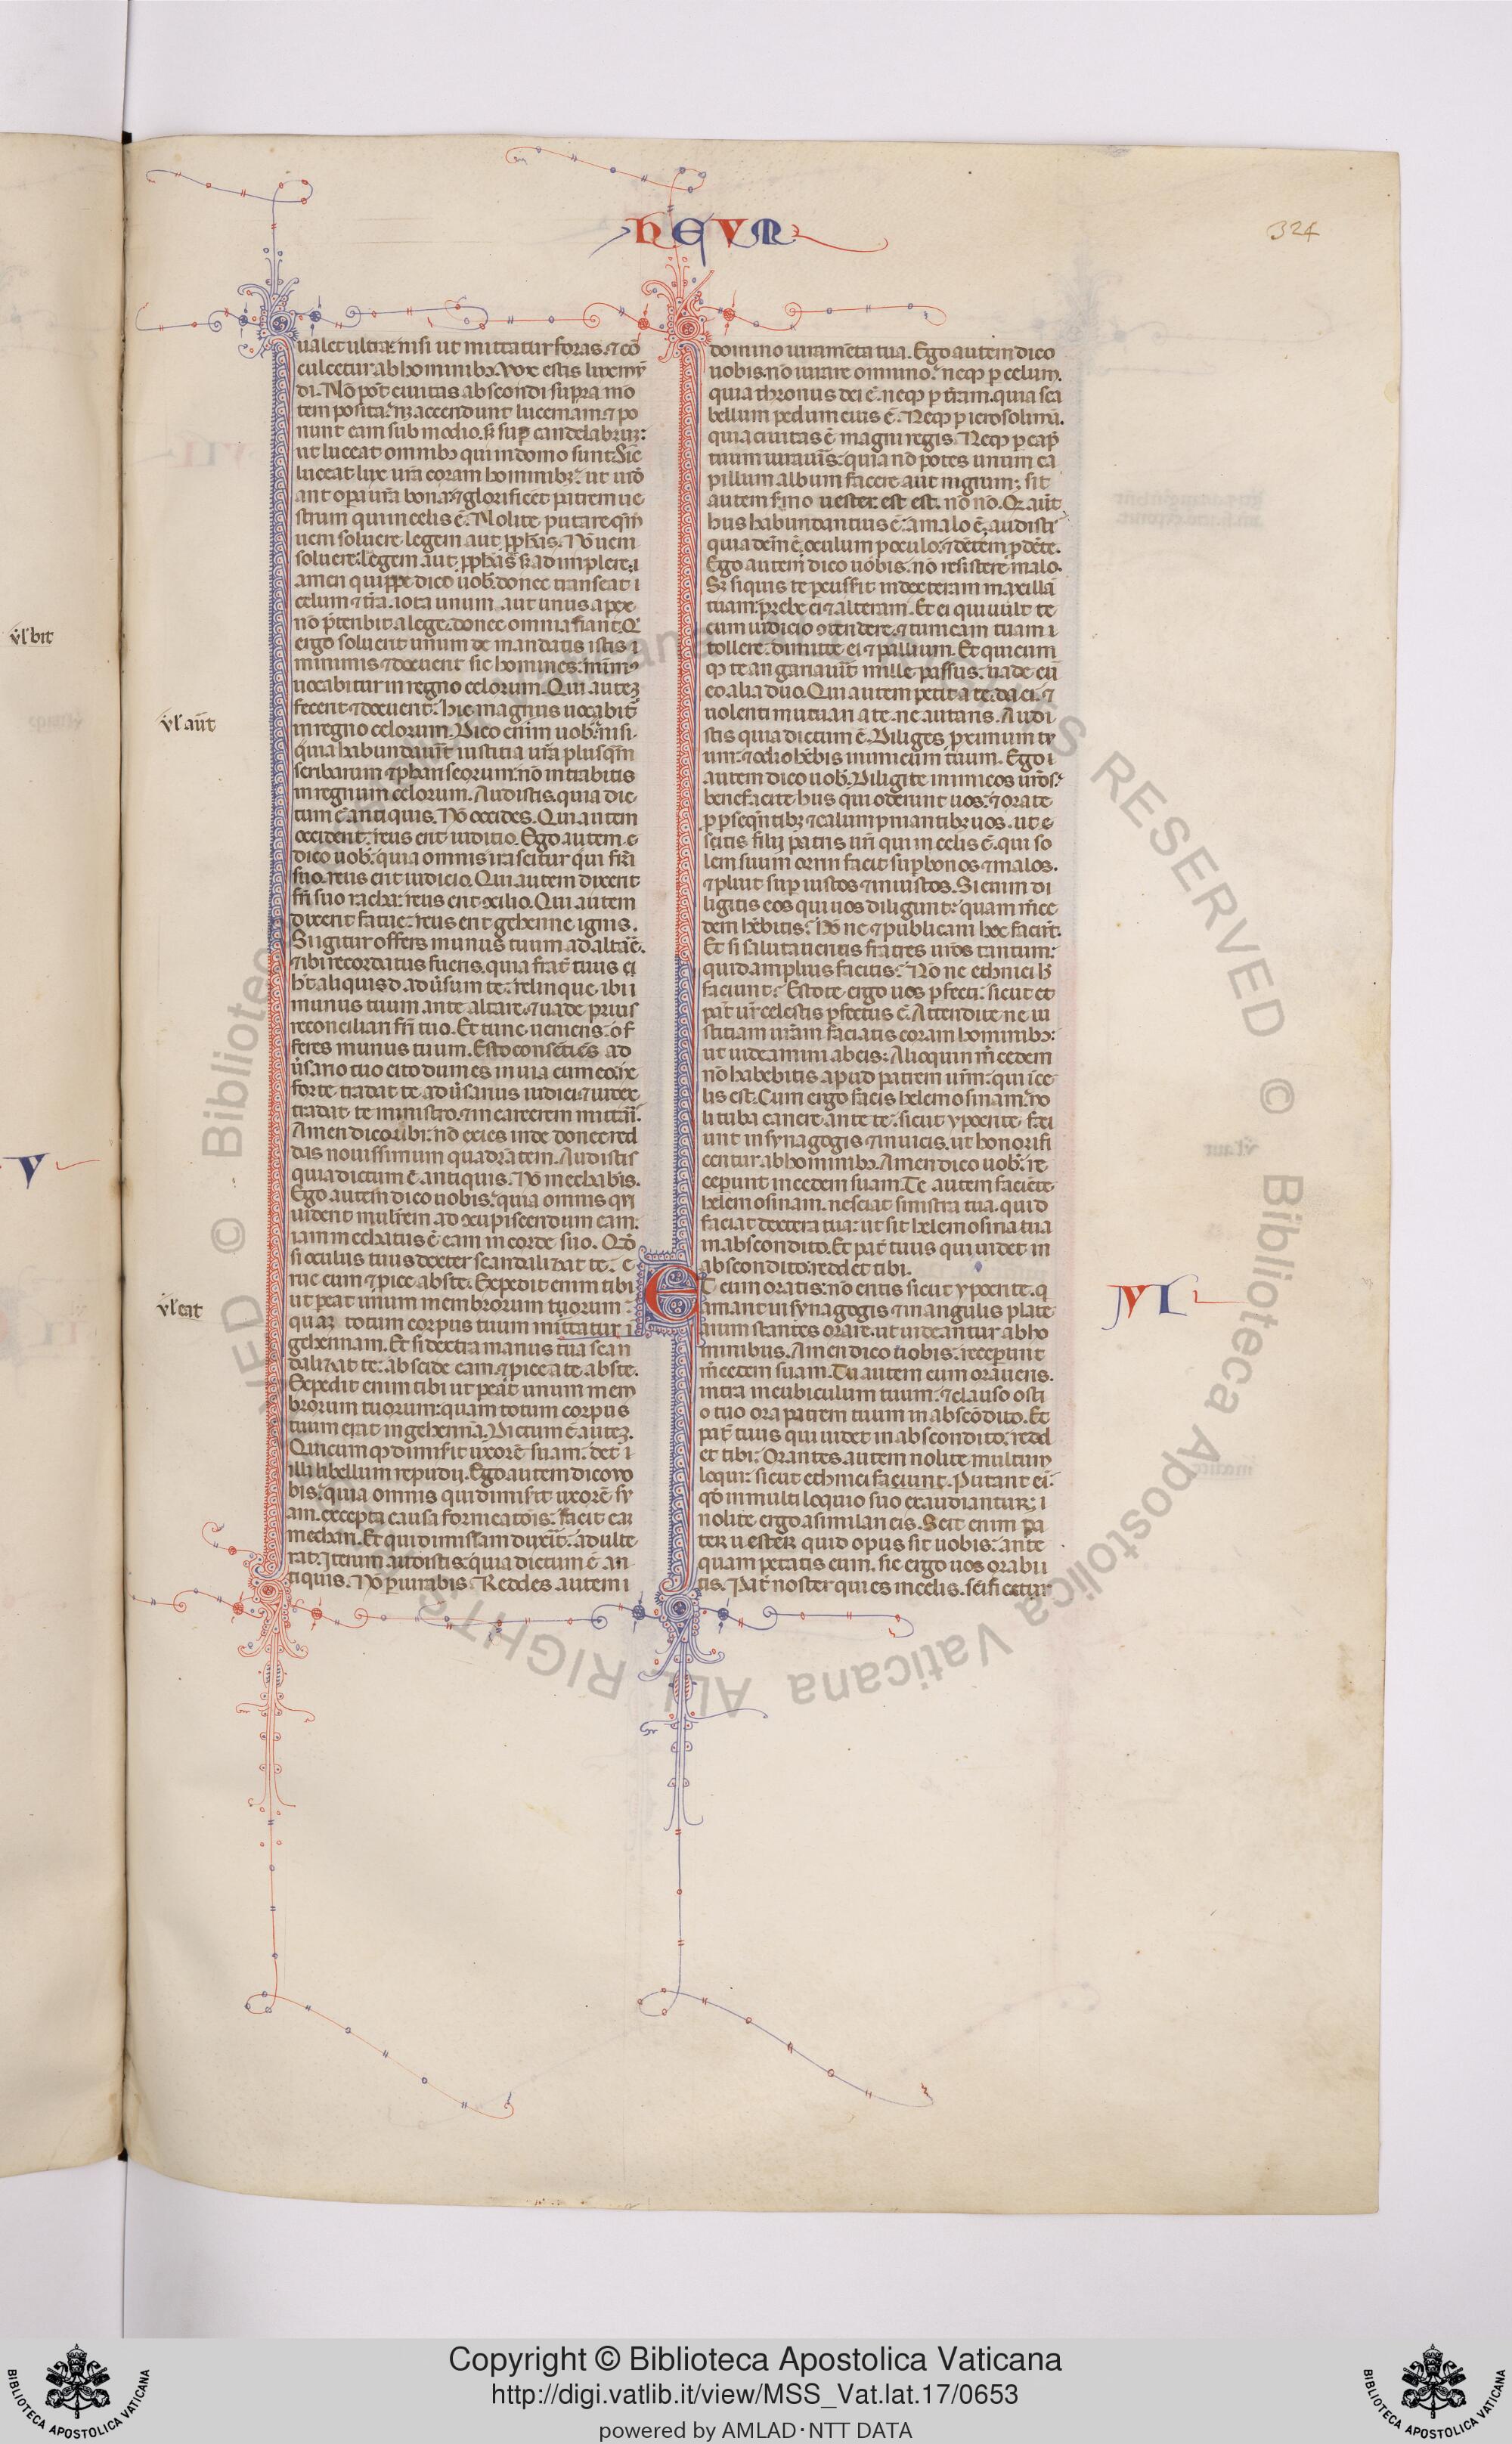 HEVM
324
ualet ultra: nisi ut mittatur foras. ⁊ cō
culcetur ab hominibꝫ. Vox estis lux mū
di. Nō pōt ciuitas abscondi supra mō
tem posita. nꝫ accendunt lucernam ⁊ po
nunt eam sub modio. sꝫ suꝑ candelabrum:
ut luceat omnibꝫ qui in domo sunt. Sic
luceat lux ur̄a coram hominibꝫ: ut uide
ant oꝑa ur̄a bona: ⁊ glorificēt patrem ue
strum qui in celis ē. Nolite putare qm̄
ueni soluere legem aut ꝓphās. Nō ueni
soluere legem aut ꝓphās sꝫ adimplere. i
amen quippe dico uob̄. donec transeat i
celum ⁊ tr̄a. iota unum aut unus apex
nō p̄teribit a lege. donec omnia fiant. Q
ergo soluerit unum de mandatis istis i
minimis ⁊ docuerit sic homines: minimꝰ
uocabitur in regno celorum. Qui autez
fecerit ⁊ docuerit: hic magnus uocabit̄
in regno celorum. Dico enim uob̄. nisi
quia habundauerit iustitia ur̄a plusqm̄
scribarum ⁊ phariseorum: nō intrabitis
in regnum celorum. Audistis. quia dic
tum ē antiquis. Nō occides. Qui autem
occiderit: reus erit iuditio. Ego autem e
dico uob̄. quia omnis irascitur qui fr̄i
suo. reus erit iudicio. Qui autem dixerit
fr̄i suo racha: reus erit ɔcilio. Qui autem
dixerit fatue: reus erit gehenne ignis.
Si igitur offers munus tuum ad altar̄e.
⁊ ibi recordatus fueris. quia frat̄ tuus ei
h̄t aliquid aduersum te: relinque ibi i
munus tuum ante altare. ⁊ uade prius
reconciliari fr̄i tuo. Et tunc ueniens: of
feres munus tuum. Esto consētiēs ad
ūsario tuo cito dum es in uia cum eo. ne
forte tradat te aduersarius iudici. ⁊ iudex
tradat te ministro. ⁊ in carcerem mittaris.
Amen dico tibi: nō exies inde donec red
das nouissimum quadrātem. Audistis
quia dictum ē antiquis. Nō mechabis.
Ego autem dico uobis. quia omnis qui
uiderit mulierem ad ɔcupiscendum eam:
iam mechatus ē eam in corde suo. Quod
si oculus tuus dexter scandalizat te. e
rue eum ⁊ proice abs te. Expedit enim tibi
ut ꝑeat unum membrorum tuorum
quam totum corpus tuum mittatur i
gehennam. Et si dextra manus tua scan
dalizat te: abscide eam. ⁊ proice a te abs te.
Expedit enim tibi ut ꝑeat unum mem
brorum tuorum: quam totum corpus
tuum erat in gehennā. Dictum ē autez.
Quicumqꝫ dimiserit uxorē suam: det i
illi libellum repudii. Ego autem dico uo
bis: quia omnis qui dimiserit uxorē su
am. excepta causa fornicatōis: facit eā
mechari. Et qui dimissam duxerit: adulte
rat. Iterum audistis. quia dictum ē an
tiquis. Nō periurabis. Reddes autem i
domino iuramēta tua. Ego autem dico
uobis. nō iurare omnino. neqꝫ ꝑ celum.
quia thronus dei ē. neqꝫ ꝑ tr̄am. quia sca
bellum pedum eius ē. Neqꝫ ꝑ ierosolimā.
quia ciuitas ē magni regis. Neqꝫ ꝑ cap̄
tuum iurauis: quia nō potes unum ca
pillum album facere aut nigrum: sit
autem sermo uester est est. nō nō. Qꝫ aut̄
hus habundantius ē: a malo ē. audisti
quia dcm̄ ē. oculum ꝓ oculo. ⁊ dētem ꝓ dēte.
Ego autem dico uobis. nō resistere malo.
Sꝫ si quis te ꝑcusserit in dexteram maxillā
tuam: prebe ei ⁊ alteram. Et ei qui uult te
cum iudicio ɔtendere. ⁊ tunicam tuam i
tollere: dimitte ei ⁊ pallium. Et quicum
qꝫ te angariauerit mille passus: uade cū
eo alia duo. Qui autem petit a te. da ei. ⁊
uolenti mutuari a te. ne autaris. Audi
stis quia dictum ē. Diliges ꝓximum tu
um: ⁊ odio hēbis inimicum tuum. Ego i
autem dico uob̄. Diligite inimicos ur̄os.
benefacite hus qui oderunt uos: ⁊ orate
ꝓ ꝑseqn̄tibꝫ ⁊ calumpniantibꝫ uos. ut e
scitis filij patris ur̄i qui in celis ē. qui so
lem suum oriri facit suꝑ bonos ⁊ malos.
⁊ pluit suꝑ iustos ⁊ iniustos. Si enim di
ligitis eos qui uos diligunt: quam m̄ce
dem hēbitis? Nō ne ⁊ publicani hoc faciūt.
Et si salutaueritis fratres ur̄os tantum:
quid amplius facitis? Nō ne ethnici h̄
faciunt? Estote ergo uos ꝑfecti: sicut et
pat̄ ur̄ celestis ꝑfectus ē. Attendite ne iu
stitiam ur̄am faciatis coram hominibꝫ:
ut uideamini ab eis: Alioquin m̄cedem
nō habebitis apud patrem ur̄m: qui i ce
lis est. Cum ergo facis helemosinam: no
li tuba canere ante te: sicut ypocrite faci
unt in synagogis ⁊ in uicis. ut honorifi
centur ab hominibꝫ. Amen dico uob̄: re
ceperunt mcedem suam. Te autem faciēte
helemosinam. nesciat sinistra tua. quid
faciat dextera tua: ut sit helemosina tua
in abscondito. Et pat̄ tuus qui uidet in
abscondito: reddet tibi.
ET cum oratis: nō eritis sicut ypocrite. q
amant in synagogis ⁊ in angulis plate
arum stantes orare. ut uideantur ab ho
minibus. Amen dico uobis: receperunt
m̄cedem suam. Tu autem cum oraueris.
intra in cubiculum tuum. ⁊ clauso osti
o tuo ora patrem tuum in abscōdito. Et
pat̄ tuus qui uidet in abscondito: redd
et tibi. Orantes autem nolite multum
loqui: sicut ethnici faciunt. Putant ei.
qđ in multi loquio suo exaudiantur: i
nolite ergo asimilari eis. Scit enim pa
ter uester quid opus sit uobis: ante
quam petatis eum. sic ergo uos orabi
tis. Pat̄ noster qui es in celis. scificetur
ūl bit
ūl aūt
ūl eat
V
VI
Copyright © Biblioteca Apostolica Vaticana
http://digi.vatlib.it/view/MSS_Vat.lat.17/0653
powered by AMLAD·NTT DATA
BIBLIOTECA APOSTOLICA VATICANA
BIBLIOTECA APOSTOLICA VATICANA
© Biblioteca Apostolica Vaticana ALL RIGHTS RESERVED